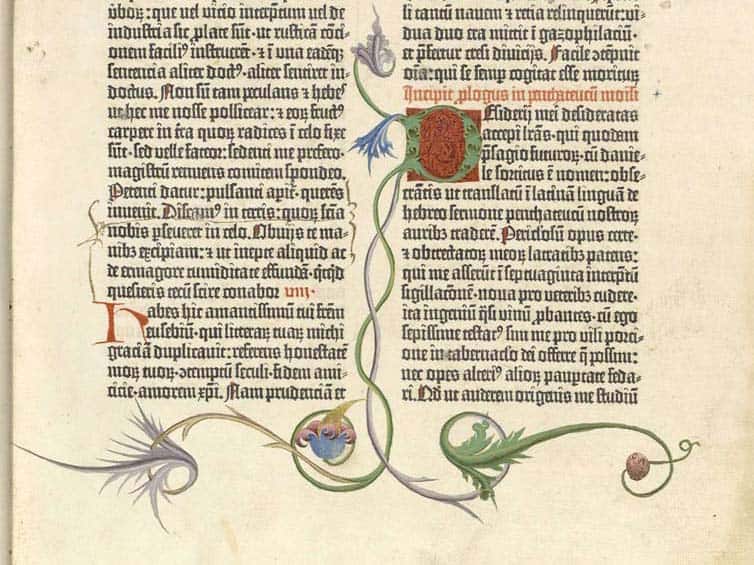 ūboꝝ: que uel vicio interpretum uel de
industria sic ꝓlate sūt · ut rusticam cōci-
onem faciliꝰ instruerēt · & ī una eadēqꝫ
sentencia aliter doctꝰ · aliter sentiret in-
doctus. Non sum tam petulans & hebeſ
ut hec me nosse pollicear: & eoꝝ fructꝰ
carpere in t̄ra quoꝝ radices ī celo fixe
sūt · sed velle fateor: sedenti me prefero·
magistrū renuens comitem spondeo.
Petenti datur: pulsanti aꝑit̄: querēs
invenit. Discamꝰ in terris: quoꝝ sc̄ia
nobis ꝑseveret in celo. Obvijs te ma-
nibꝫ excipiam: & ut inepte aliquid ac
de ermagore tumiditate effundā · q̄cqd
quesieris tecū scire conabor viij·
Habes hic amantissimū tui frēm
eusebiū · qui literaꝝ tuaꝝ michi
graciā duplicavit: referens honestatē
moꝝ tuoꝝ · ↄtemptū seculi · fidem ami-
cicie · amorem xp̄i. Nam prudenciā et
li cantū navem & retia relinquerūt: vi-
dua duo era mittit ī gazophilaciū ·
et p̄fertur cresi divicijs. Facile ↄtēpnit
oīa: qui se semꝑ cogitat esse moriturū
Incipit ꝓlogus in penthateucū moisi
Desiderij mei desideratas
accepi l̄ras · qui quodam
p̄sagio futuroꝝ · cū danie-
le sortitus ē nomen: obse-
crātis ut translatū ī latinam linguā de
hebreo sermone penthateucū nostroꝝ
auribꝫ traderē. Periclosū opus certe ·
& obtrectatoꝝ meoꝝ latratibꝫ patens:
qui me asserūt ī septuaginta interp̄tū
sigillacōnē · nova pro veteribꝫ cudere ·
ita ingeniū q̄si vinū ꝓbantes · cū ego
sepissime testatꝰ sim me pro virili porci-
one in tabernac̄lo dei offerre q̄ possim:
nec opes alteriꝰ alioꝝ paupertate feda-
ri. Qd' ut auderem origenis me studiū